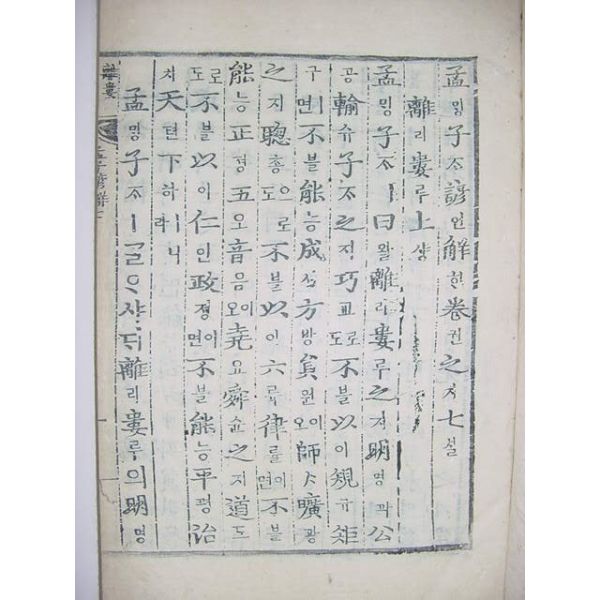 孟ᄆᆡᆼ子ᄌᆞ諺언解ᄒᆡ卷권之지七칠
離리婁루上샹
孟ᄆᆡᆼ子ᄌᆞㅣ曰왈離리婁루之지明명과公
공輸슈子ᄌᆞ之지巧교로도不불以이規규矩
구ㅣ면不불能능成셩方방員원이오師ᄉᆞ曠광
之지聰총으로도不불以이六륙律률이면不불
能능正졍五오音음이오堯요舜슌之지道도
로도不불以이仁인政졍이면不불能능平평治
치天텬下하ㅣ니라
孟ᄆᆡᆼ子ᄌᆞㅣᄀᆞᆯᄋᆞ샤ᄃᆡ離리婁루의明명